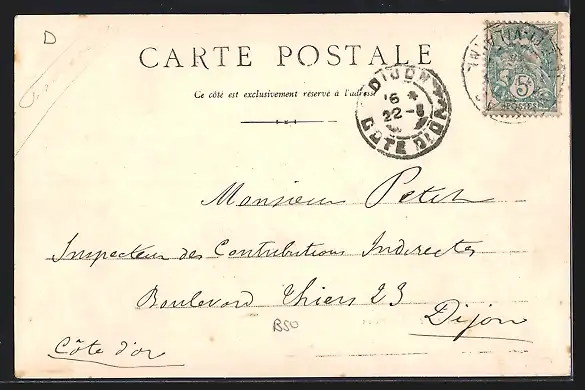 D
CARTE POSTALE
Ce côté est exclusivement réservé à l'adresse
DIJON
6 *
22 - 8
COTE D'OR
5
POSTES
Monsieur Petit
Inspecteur des Contributions Indirectes
Boulevard Thiers 23
Dijon
BSO
Côte d'or